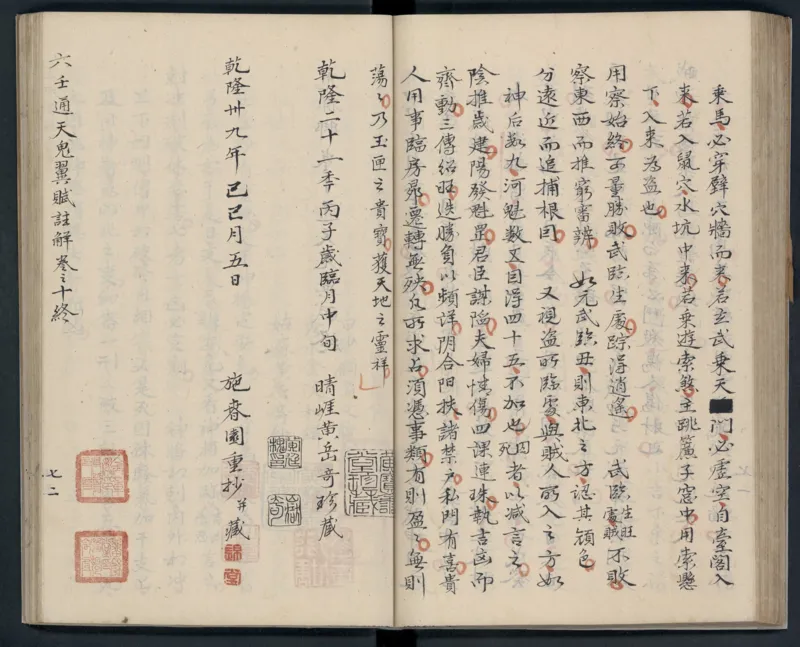 乘馬必穿壁穴牆而來若玄武乘天門必虛空自臺閣入
來若入鼠穴水坑中來若乘遊索煞主跳簷子窓中用索懸
下入來為盜也
用察始終而量勝敗武臨生處踪淂逍遙 武臨生旺處賊不敗
察東西而推窮審辨 如元武臨丑則東北之方認其顏色
分遠近而追捕根囙 又視盜所臨處與賊人所入之方如
神后數九河魁數又囙淂四十五不加也囚死者以減言之
陰推歲建陽發魁罡君臣謀陥夫婦情傷四課連珠執吉凶而
齊動三傳紹旺迭勝負以頻詳阴合阳扶諸禁户私門有喜貴
人用事臨房昴遷轉無殃凡所求占須憑事類有則盈〻無則
蕩〻乃玉匣之貴寶獲天地之靈祥
乾隆二十一季丙子歲臨月中旬 晴崕黄岳奇珍藏
乾隆卅九年己巳月五日 施春園重抄并藏
六壬通天鬼翼賦註解卷之十終
七二